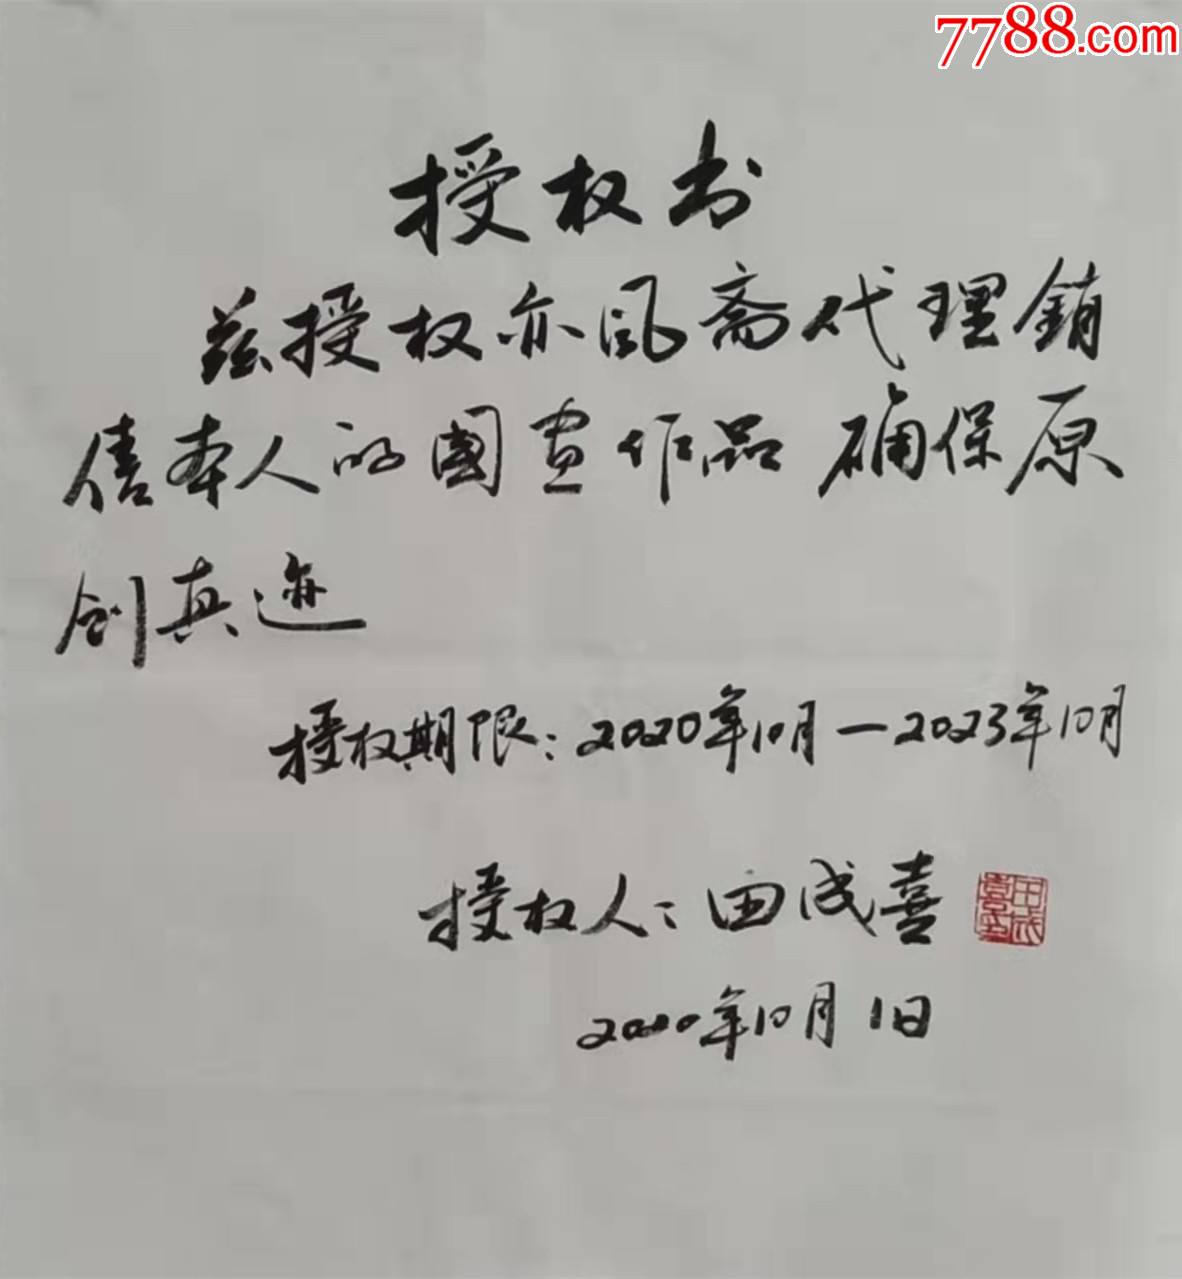 7788.com
授权书
兹授权亦风斋代理銷
售本人的國画作品 确保原
创真迹
授权期限：2020年10月—2023年10月
授权人：田成喜
田成喜印
2020年10月1日